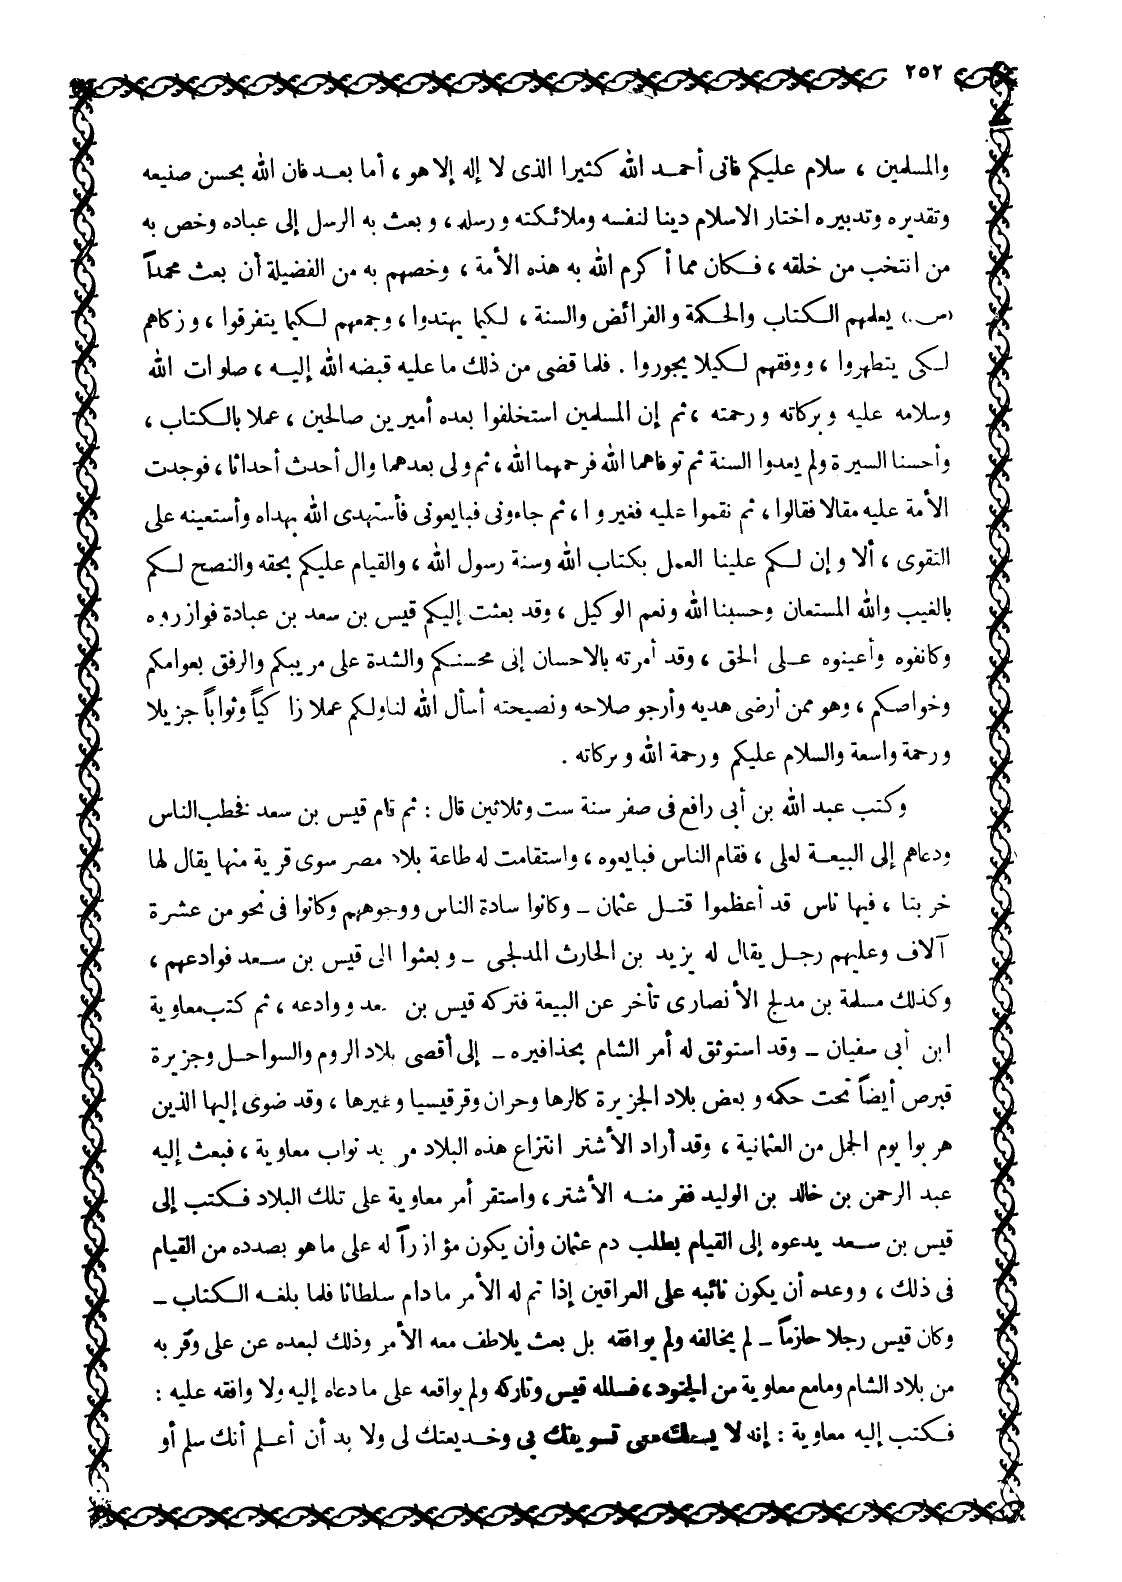 ٢٥٢
والمسلمين ، سلام عليكم فانى أحمد الله كثيرا الذى لا إله إلا هو ، أما بعد فان الله بحسن صنيعه
وتقديره وتدبيره اختار الاسلام دينا لنفسه وملائكته ورسله ، وبعث به الرسل إلى عباده وخص به
من انتخب من خلقه ، فكان مما أكرم الله به هذه الأمة ، وخصهم به من الفضيلة أن بعث محمداً
(ص.) يعلمهم الكتاب والحكمة والفرائض والسنة ، لكيما يهتدوا ، وجمعهم لكيما يتفرقوا ، وزكاهم
لكى يتطهروا ، ووفقهم لكيلا يجوروا . فلما قضى من ذلك ما عليه قبضه الله إليه ، صلوات الله
وسلامه عليه وبركاته ورحمته ، ثم إن المسلمين استخلفوا بعده أميرين صالحين ، عملا بالكتاب ،
وأحسنا السيرة ولم يعدوا السنة ثم توفاهما الله فرحمهما الله ، ثم ولى بعدهما وال أحدث أحداثا ، فوجدت
الأمة عليه مقالا فقالوا ، ثم نقموا عليه فغيروا ، ثم جاءونى فبايعونى فأستهدى الله بهداه وأستعينه على
التقوى ، ألا وإن لكم علينا العمل بكتاب الله وسنة رسول الله ، والقيام عليكم بحقه والنصح لكم
بالغيب والله المستعان وحسبنا الله ونعم الوكيل ، وقد بعثت إليكم قيس بن سعد بن عبادة فوازروه
وكانفوه وأعينوه على الحق ، وقد أمرته بالاحسان إلى محسنكم والشدة على مريبكم والرفق بعوامكم
وخواصكم ، وهو ممن أرضى هديه وأرجو صلاحه ونصيحته أسأل الله لنا ولكم عملا زاكياً وثواباً جزيلا
ورحمة واسعة والسلام عليكم ورحمة الله وبركاته .
وكتب عبد الله بن أبى رافع فى صفر سنة ست وثلاثين قال : ثم قام قيس بن سعد فخطب الناس
ودعاهم إلى البيعة لعلى ، فقام الناس فبايعوه ، واستقامت له طاعة بلاد مصر سوى قرية منها يقال لها
خربتا ، فيها ناس قد أعظموا قتل عثمان - وكانوا سادة الناس ووجوههم وكانوا فى نحو من عشرة
آلاف وعليهم رجل يقال له يزيد بن الحارث المدلجى - وبعثوا الى قيس بن سعد فوادعهم ،
وكذلك مسلمة بن مدلج الأنصارى تأخر عن البيعة فتركه قيس بن سعد ووادعه ، ثم كتب معاوية
ابن أبى سفيان - وقد استوثق له أمر الشام بحذافيره - إلى أقصى بلاد الروم والسواحل وجزيرة
قبرص أيضاً تحت حكمه وبعض بلاد الجزيرة كالرها وحران وقرقيسيا وغيرها ، وقد ضوى إليها الذين
هربوا يوم الجمل من العثمانية ، وقد أراد الأشتر انتزاع هذه البلاد من يد نواب معاوية ، فبعث إليه
عبد الرحمن بن خالد بن الوليد ففر منه الأشتر ، واستقر أمر معاوية على تلك البلاد فكتب إلى
قيس بن سعد يدعوه إلى القيام بطلب دم عثمان وأن يكون مؤازراً له على ما هو بصدده من القيام
فى ذلك ، ووعده أن يكون نائبه على العراقين إذا تم له الأمر ما دام سلطانا فلما بلغه الكتاب -
وكان قيس رجلا حازماً - لم يخالفه ولم يوافقه بل بعث يلاطف معه الأمر وذلك لبعده عن على وقربه
من بلاد الشام وما مع معاوية من الجنود ، فسالمه قيس وتاركه ولم يواقعه على ما دعاه إليه ولا وافقه عليه :
فكتب إليه معاوية : إنه لا يسعك معى تسويفك بى وخديعتك لى ولا بد أن أعلم أنك سلم أو